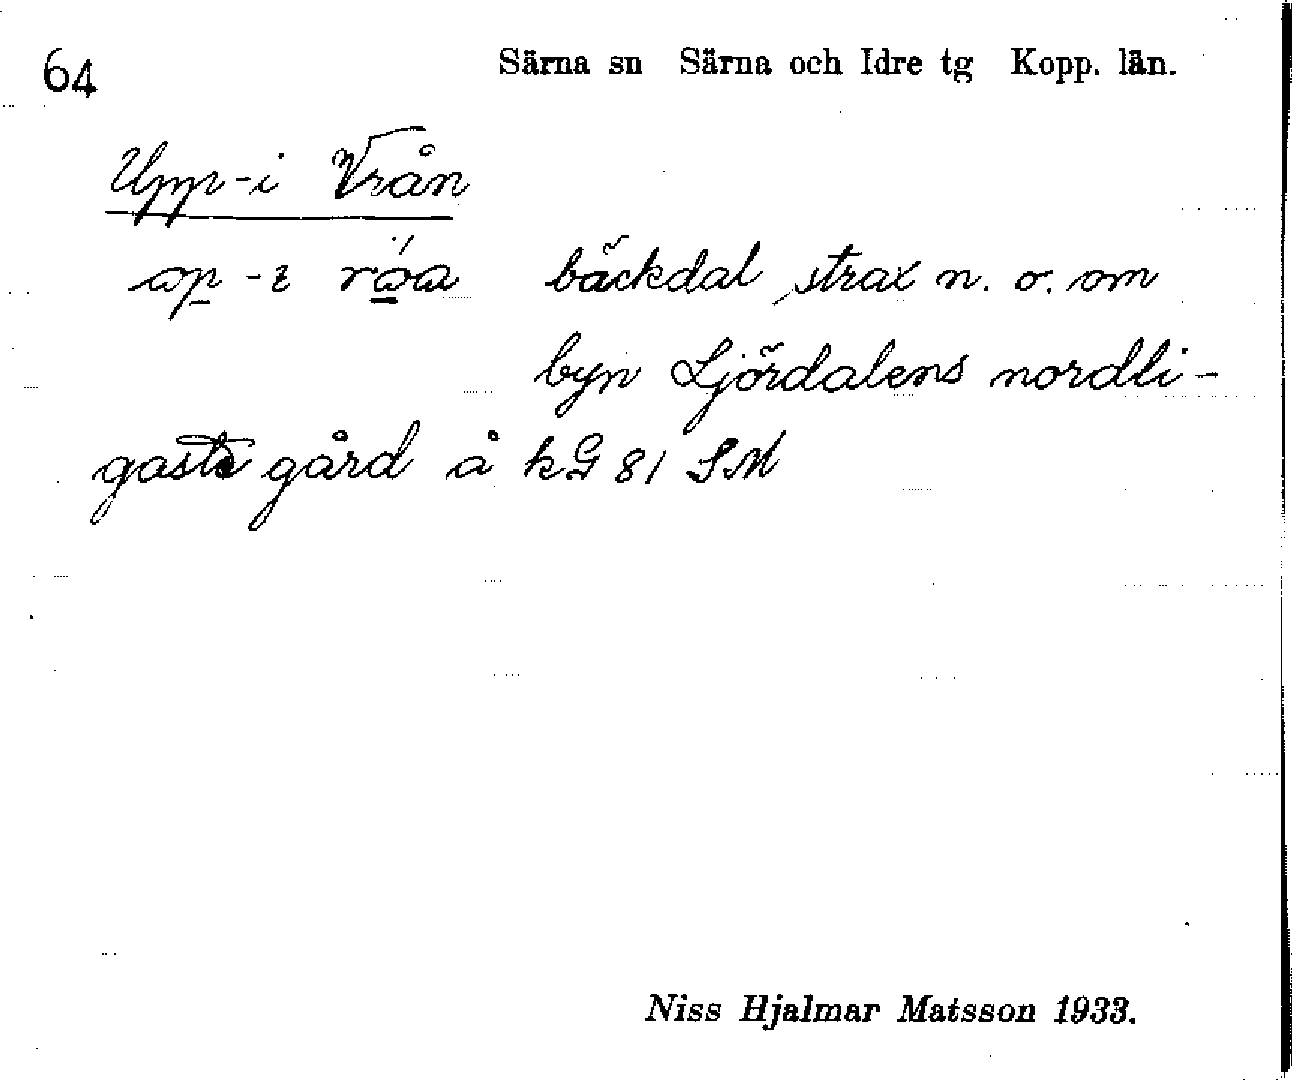 64
Särna sn Särna och Idre tg Kopp. län.
Upp-i Vrån
bäckdal, strax n. o. om
byn Ljördalens nordli-
gaste gård å kG 81 SM
Niss Hjalmar Matsson 1933.